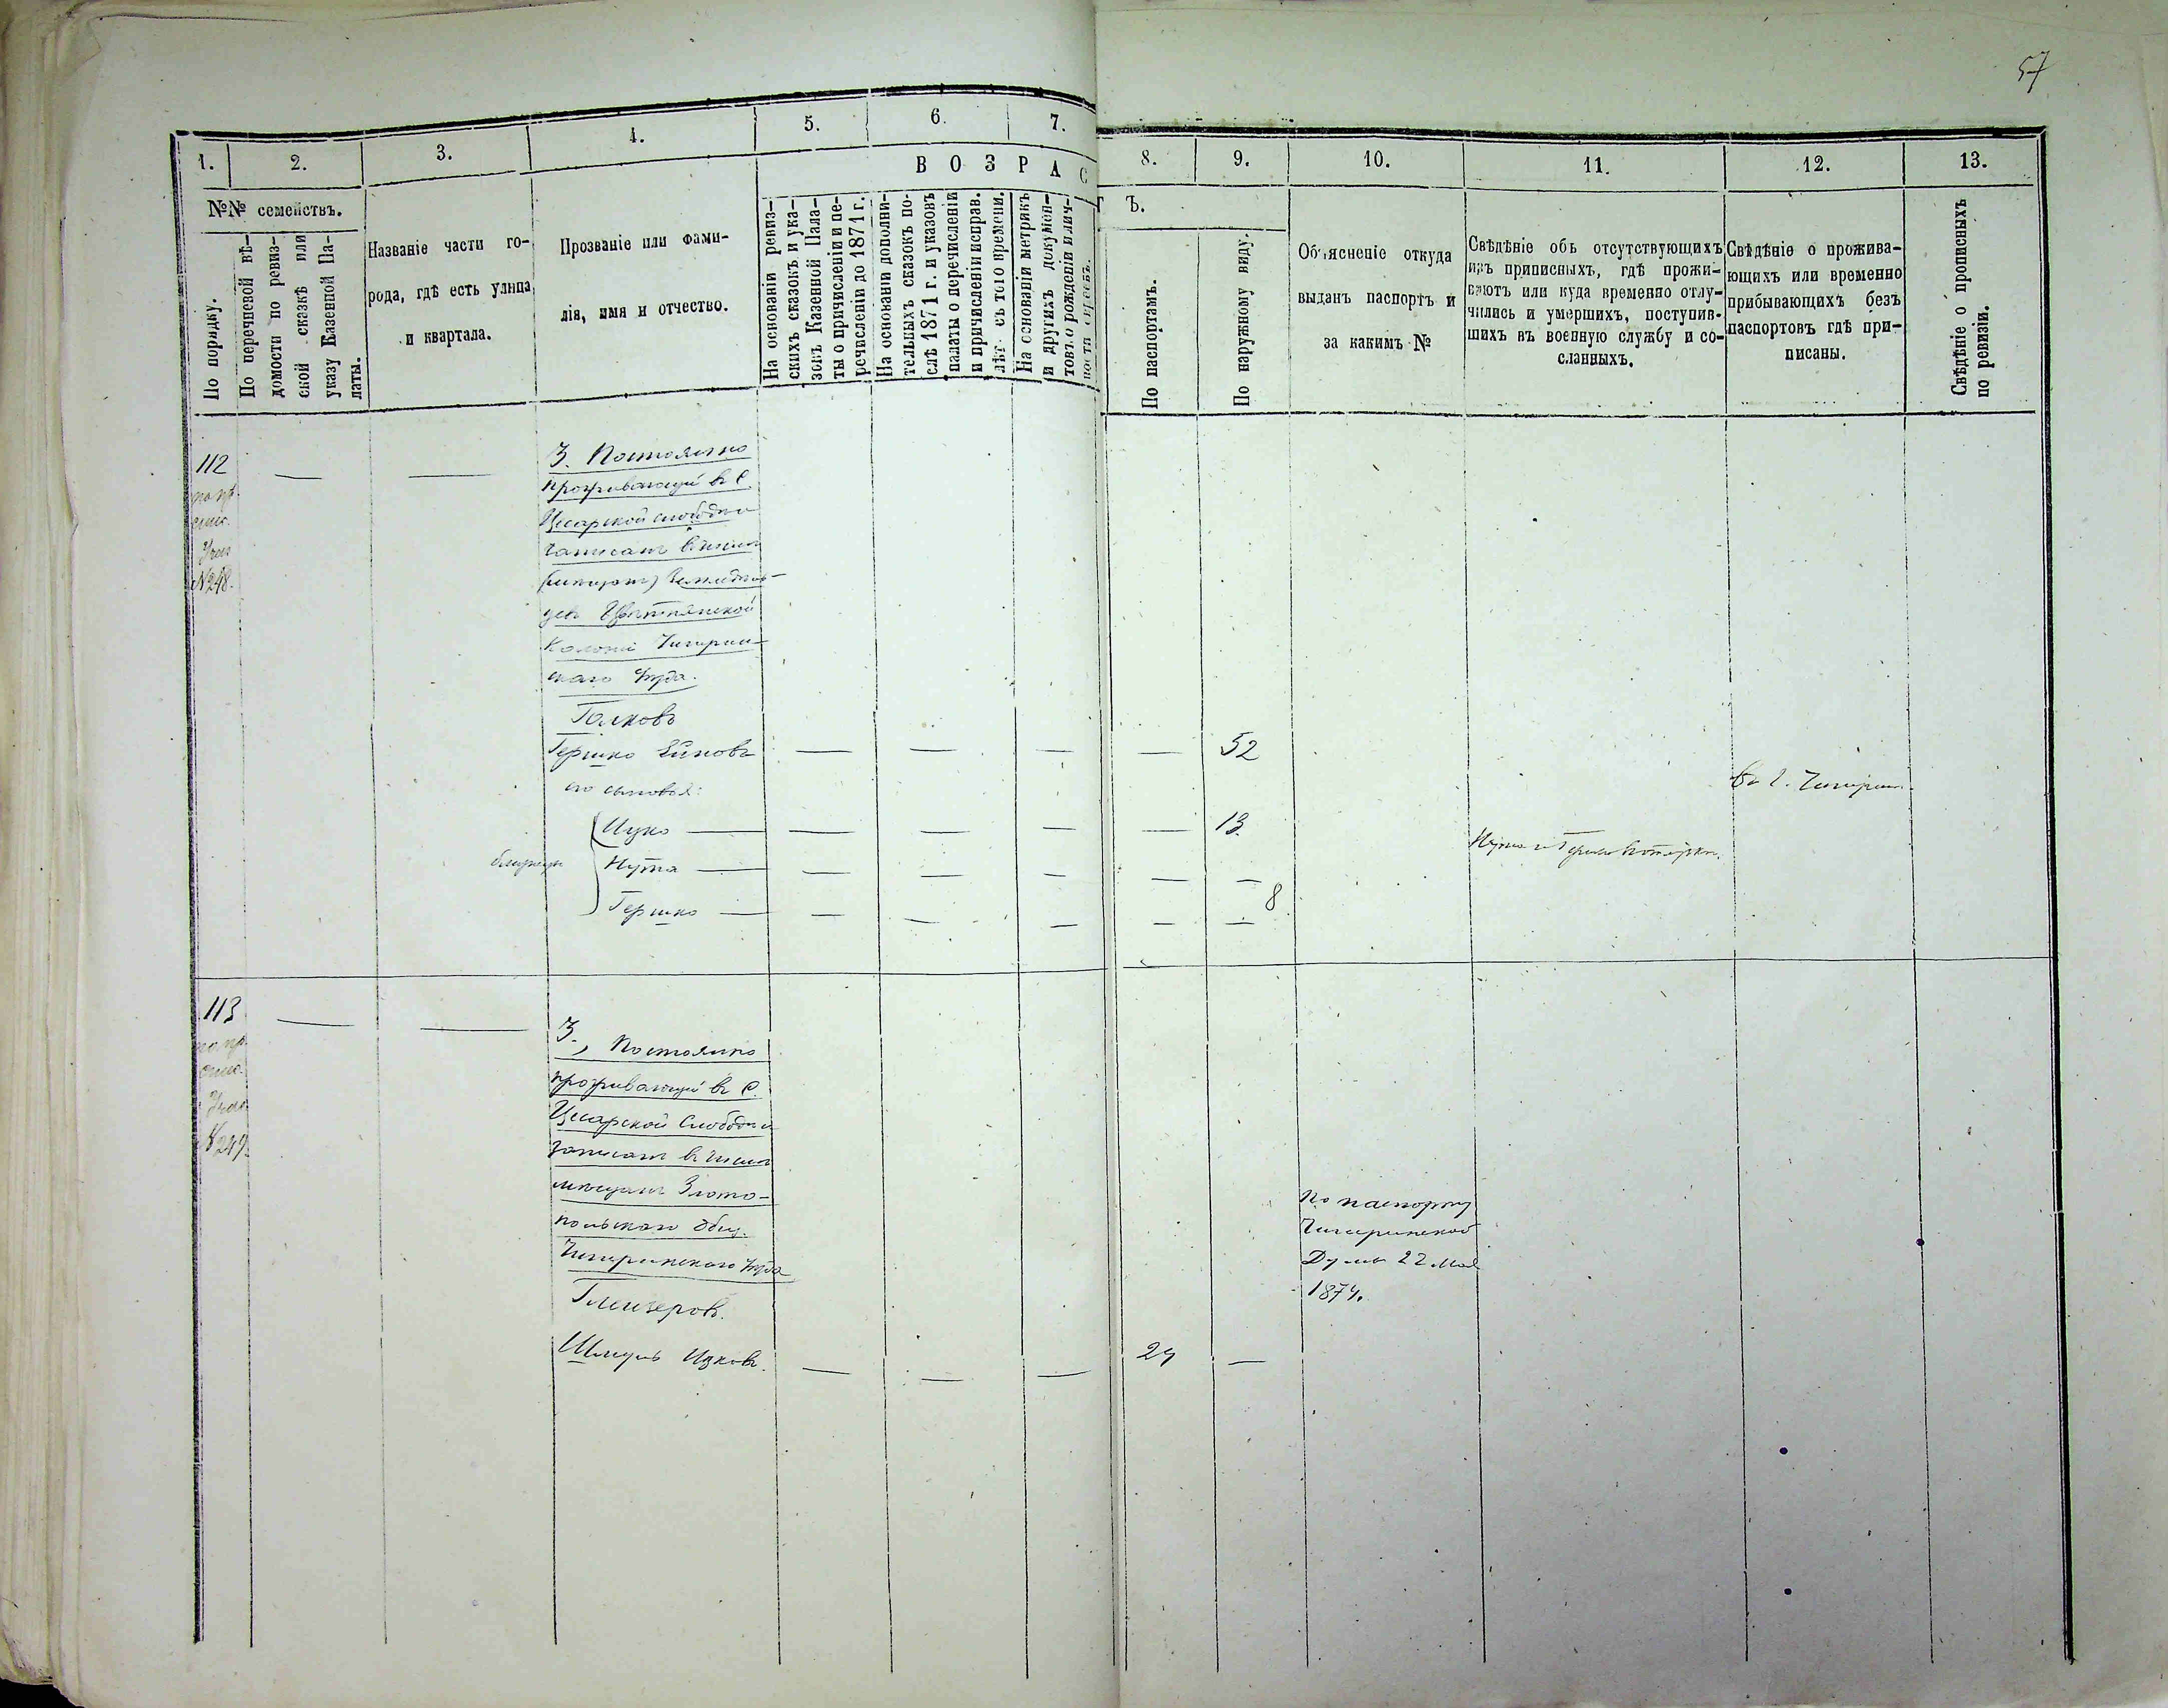 57
1. 2. 3. 4. 5. 6. 7. 8. 9. 10. 11. 12. 13.
В О З Р А С Т Ъ.
№№ семействъ.
По порядку.
По перечневой вѣ-
домости по ревиз-
ской сказкѣ или
указу Казенной Па-
латы.
Названіе части го-
рода, гдѣ есть улица
и квартала.
Прозваніе или Фами-
лія, имя и отчество.
На основаніи ревиз-
скихъ сказокъ и ука-
зовъ Казенной Пала-
ты о причисленіи и пе-
речисленіи до 1871 г.
На основаніи дополни-
тельныхъ сказокъ по-
слѣ 1871 г. и указовъ
палаты о перечисленіи
и причисленіи исправ.
лѣт. съ того времени.
На основаніи метрикъ
и другихъ докумѣн-
товъ о рожденіи и лич-
По паспортамъ.
По наружному виду.
Объясненіе откуда
выданъ паспортъ и
за какимъ №
Свѣдѣніе объ отсутствующихъ
изъ приписныхъ, гдѣ прожи-
ваютъ или куда временно отлу-
чились и умершихъ, поступив-
шихъ въ военную службу и со-
сланныхъ.
Свѣдѣніе о прожива-
ющихъ или временно
прибывающихъ безъ
паспортовъ гдѣ при-
писаны.
Свѣдѣніе о прописныхъ
по ревизіи.
112
№248.
3. Постоянно
проживающій въ С.
Цесарской слободкѣ
записанъ въ числѣ
Колоніи Чигирин-
скаго Уѣзда.
Гершко
52
его сыновья:
въ г. Чигирин.
Ицко 13
близнецы
Нута
8
Гершко
113
№249.
3., Постоянно
проживающій въ С.
Цесарской Слободкѣ
записанъ въ числѣ
мѣщанъ Злато-
польскаго общ.
Чигиринскаго Уѣзда
По паспорту
Чигиринской
Думы 22 мая
1874.
Шмуль Ицковъ 24